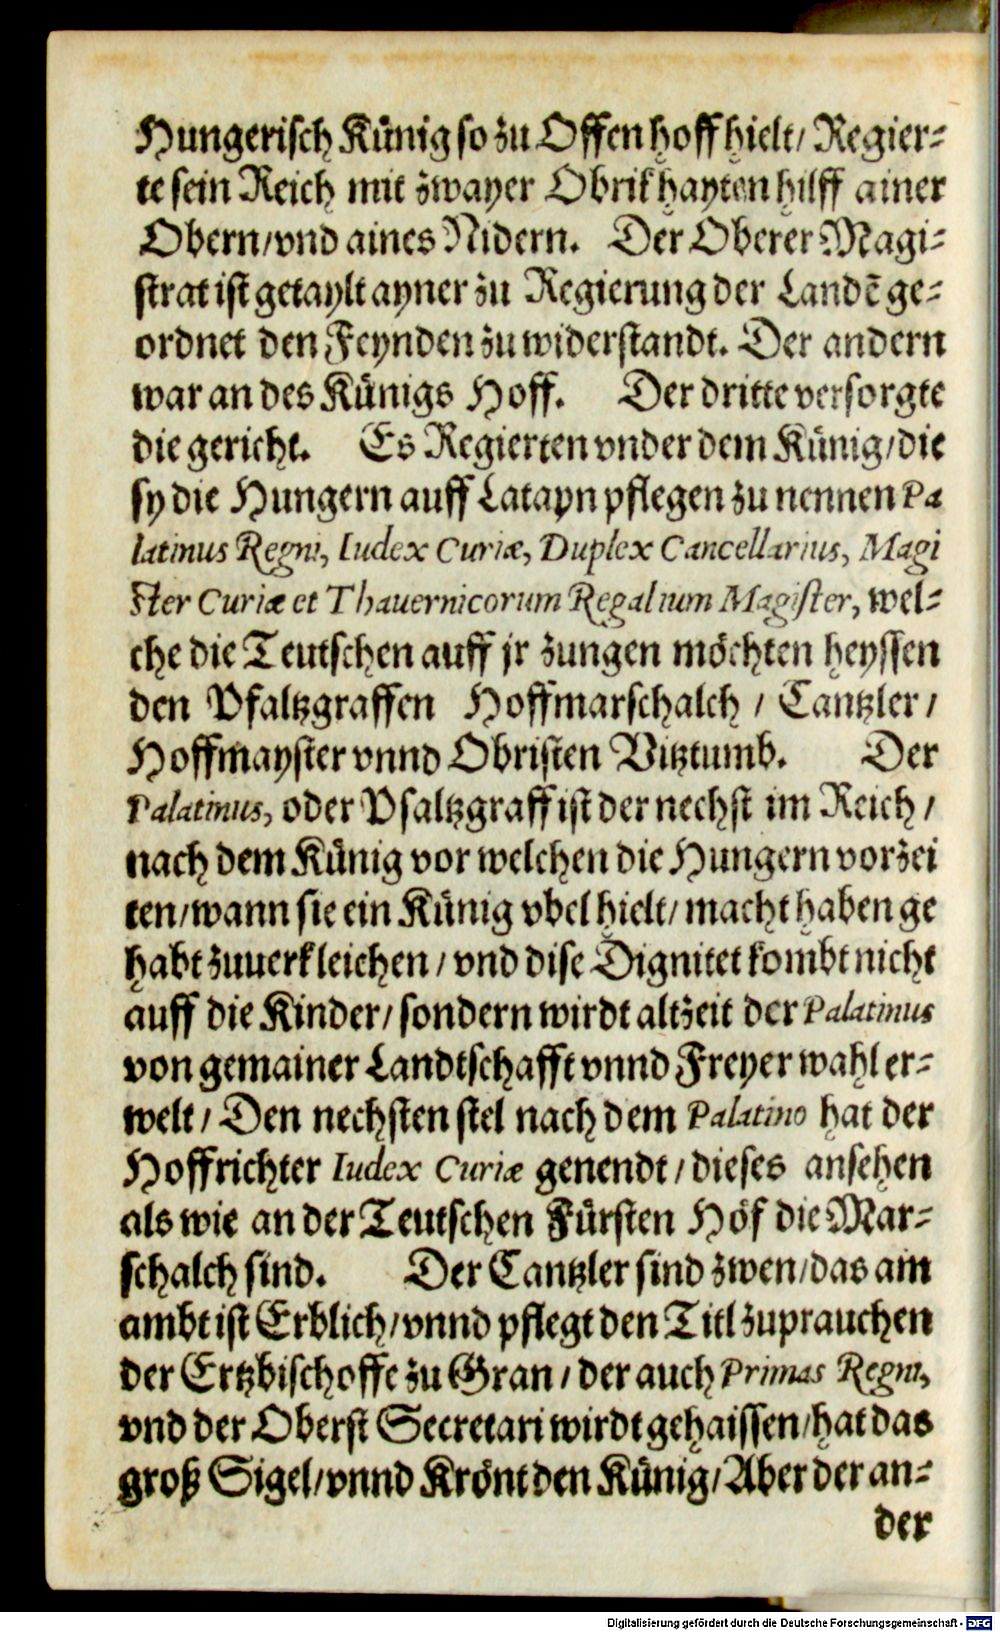 Hungerisch Künig so zu Offen hoff hielt/ Regier⸗
te sein Reich mit zwayer Obrikhayten hilff ainer
Obern/vnd aines Nidern. Der Oberer Magi⸗
strat ist getaylt ayner zu Regierung der Landẽ ge⸗
ordnet den Feynden zu widerstandt. Der andern
war an des Künigs Hoff. Der dritte versorgte
die gericht. Es Regierten vnder dem Künig/die
sy die Hungern auff Latayn pflegen zu nennen Pa
latinus Regni, Iudex Curiæ, Duplex Cancellarius, Magi
ster Curiæ et Thauernicorum Regalium Magister, wel⸗
che die Teutschen auff jr zungen möchten heyssen
den Pfaltzgraffen Hoffmarschalch / Cantzler /
Hoffmayster vnnd Obristen Vitztumb. Der
Palatinus, oder Pfaltzgraff ist der nechst im Reich /
nach dem Künig vor welchen die Hungern vorzei
ten/wann sie ein Künig vbel hielt/ macht haben ge
habt zuuerkleichen / vnd dise Dignitet kombt nicht
auff die Kinder/ sondern wirdt altzeit der Palatinus
von gemainer Landtschafft vnnd Freyer wahl er⸗
welt / Den nechsten stel nach dem Palatino hat der
Hoffrichter Iudex Curiæ genendt / dieses ansehen
als wie an der Teutschen Fürsten Höf die Mar⸗
schalch sind. Der Cantzler sind zwen/das am
ambt ist Erblich/vnnd pflegt den Titl zuprauchen
der Ertzbischoffe zu Gran / der auch Primas Regni,
vnd der Oberst Secretari wirdt gehaissen/hat das
groß Sigel/vnnd Krönt den Künig/Aber der an⸗
der
Digitalisierung gefördert durch die Deutsche Forschungsgemeinschaft - DFG